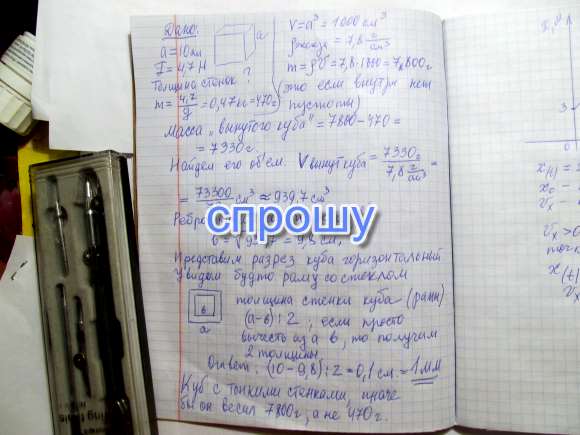 Дано:
a = 10 см
F = 4,7 Н
Толщина стенок?
a
m = 4,7/g = 0,47 кг = 470 г
V = a³ = 1000 см³
ρжелеза = 7,8 г/см³
m = ρV = 7,8·1000 = 7800 г.
(это если внутри нет
пустоты)
Масса „вынутого куба" = 7800 − 470 =
= 7330 г.
Найдем его об'ем. V вынут куба = 7330 г / 7,8 г/см³ =
= 73300 см³ ≈ 939,7 см³
спрошу
= 9,8 см,
Представим разрез куба горизонтальный
Увидим будто раму со стеклом
в
a
толщина стенки куба (рамы)
(a−в):2; если просто
вычесть из a в, то получим
2 толщины.
Ответ: (10−9,8):2 = 0,1 см = 1 мм
Куб с тонкими стенками, иначе
бы он весил 7800 г, а не 470 г.
3
0